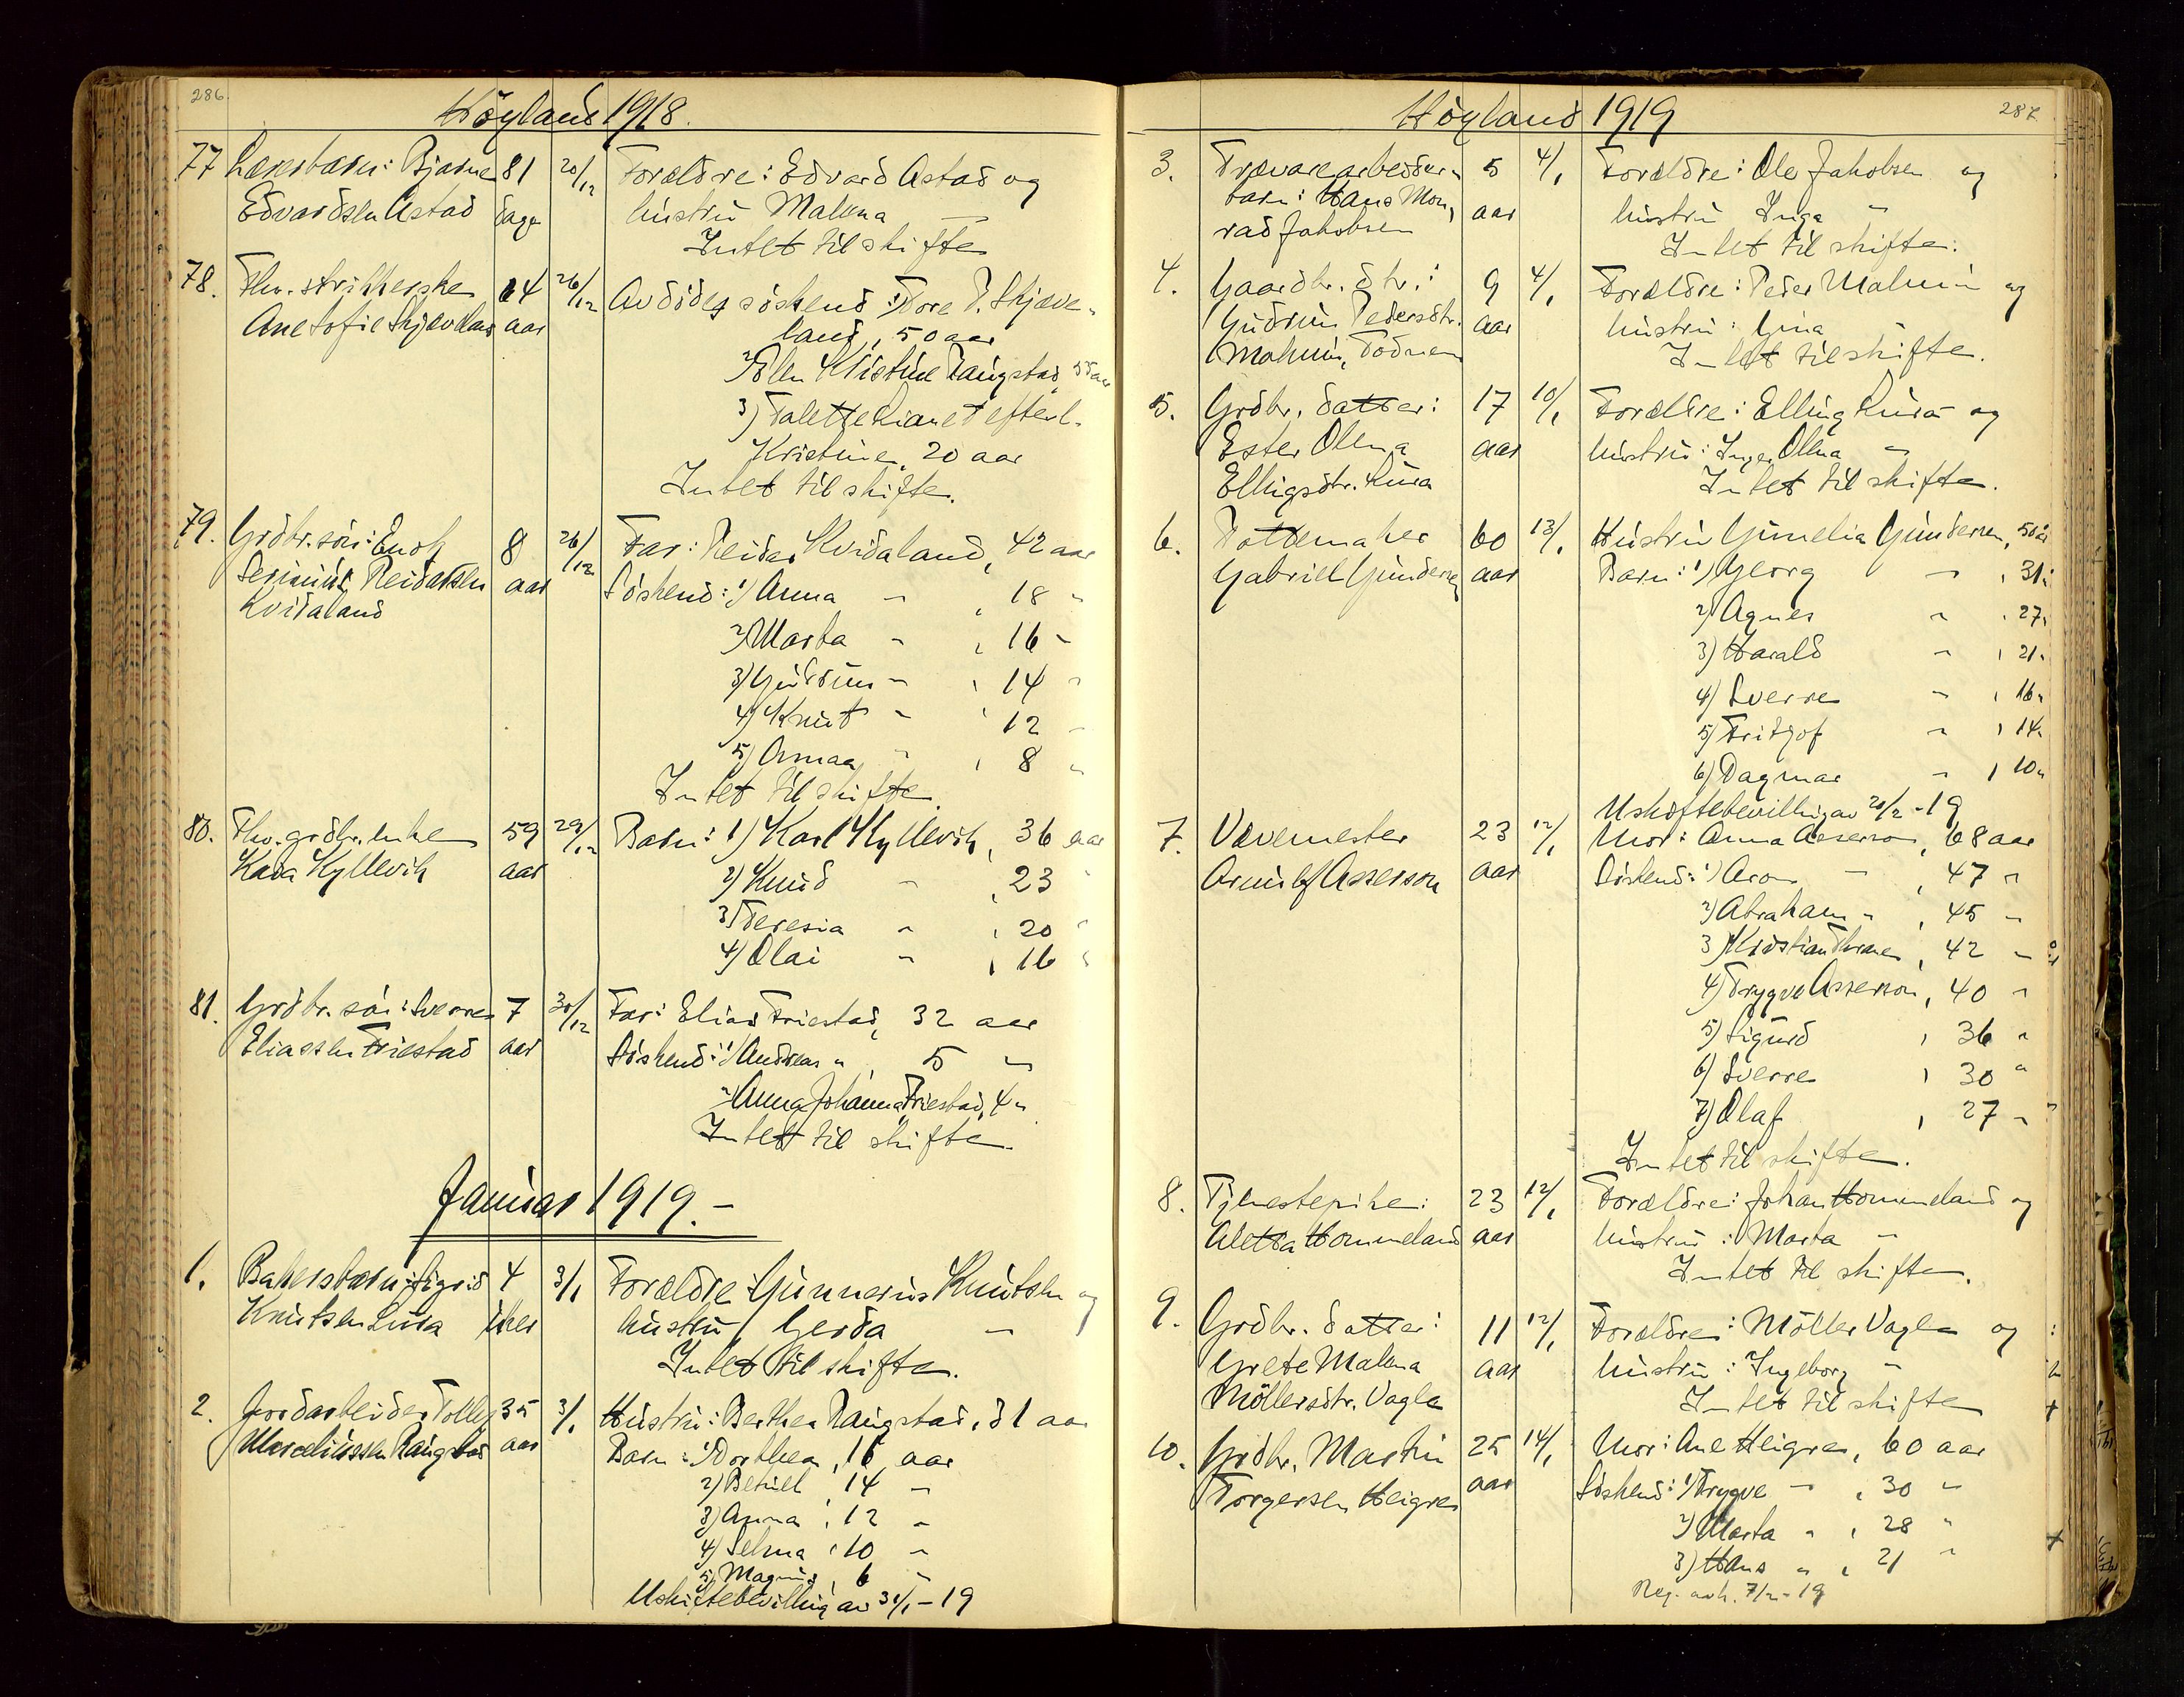 286
Höyland 1918.
77 Lærerbarn: Bjarne 81 20/12 Forældre: Edvard Astad og
Edvardsen Astad dage hustru Malena —
Intet til skifte
78. Fhv. strikkerske 64 26/12 Avdødes søskend: 1) Tore T. Skjæve-
Ane Sofie Skjæveland aar land, 50 aar
2) Elen Kristine Raugstad, 55 aar
3)
Kristine, 20 aar
Intet til skifte.
79. Grdbr. søn: Enok 8 26/12 Far: Reidar Kvidaland, 42 aar
Reidarsen aar Søskend: 1) Anna " , 18 "
Kvidaland 2) Marta " , 16 "
3) Gudrun " , 14 "
4) Knut " , 12 "
5) " , 8 "
Intet til skifte.
80. Fhv. grdbr. enke 59 29/12 Barn: 1) Karl Kyllevik, 36 aar
Kyllevik aar 2) Knud " , 23 "
3) Teresia " , 20 "
4) Olai " , 16 "
81. Grdbr. søn: Sverre 7 30/12 Far: Elias Friestad, 32 aar
Eliassen Friestad aar Søskend: 1) Andreas " , 5 "
2) Anna Johanna Friestad, 4 "
Intet til skifte.
Januar 1919.-
1. Bakers barn: Sigrid 4 3/1 Forældre: Gunnerius Knutsen og
Knutsen Lura uker hustru Gerda "
Intet til skifte.
2. Jordarbeider Tollef 35 3/1 Hustru: Berthea Raugstad, 31 aar
Marseliussen Raugstad aar Barn: 1) Dorthea, 16 aar
2) Betuel, 14 "
3) Anna, 12 "
4) Selma, 10 "
5) Magnus, 6 "
Uskiftebevilling av 31/1-19
287
Höyland 1919
3. Trævarearbeiders 5 4/1 Forældre: Ole Jakobsen og
barn: Hans Mon- aar hustru Inga "
rad Jakobsen Intet til skifte.
4. Gaardbr. dtr.: 9 4/1 Forældre: Peder Malmin og
Gudrun Pedersdtr. aar hustru: Gina "
Malmin, Intet til skifte.
5. Grdbr. datter: 17 10/1 Forældre: Elling Lura og
Ester Olena aar hustru: Inger Olena "
Ellingsdtr. Lura Intet til skifte.
6. Pottemaker 60 13/1 Hustru Gunelia Gundersen, 50 år
Gabriel Gundersen aar Barn: 1) Georg " , 31 "
2) Agnes " , 27 "
3) Harald " , 21 "
4) Sverre " , 16 "
5) Fritjof " , 14 "
6) Dagmar " , 10 "
Uskiftebevilling av 20/2-19
7. Vævemester 23 12/1 Mor: Anna Asserson, 68 aar
Arnulf Asserson aar Søskend: 1) Aron " , 47 "
2) Abraham " , 45 "
3) Kristian Thrane, 42 "
4) Trygve Asserson, 40 "
5) Sigurd , 36 "
6) Sverre , 30 "
7) Olaf , 27 "
Intet til skifte.
8. Tjenestepike: 23 12/1 Forældre: Johan Hommeland og
Aletta Hommeland aar hustru: Marta "
Intet til skifte.
9. Grdbr. datter: 11 12/1 Forældre: Möller Vagle og
Grete Malena aar hustru: Ingeborg "
Möllersdtr. Vagle Intet til skifte
10. Grdbr. Martin 25 14/1 Mor: Ane Heigre, 60 aar
Torgersen Heigre aar Søskend: 1) Trygve " , 30 "
2) Marta " , 28 "
3) Hans " , 21 "
Reg. avh. 7/2-19